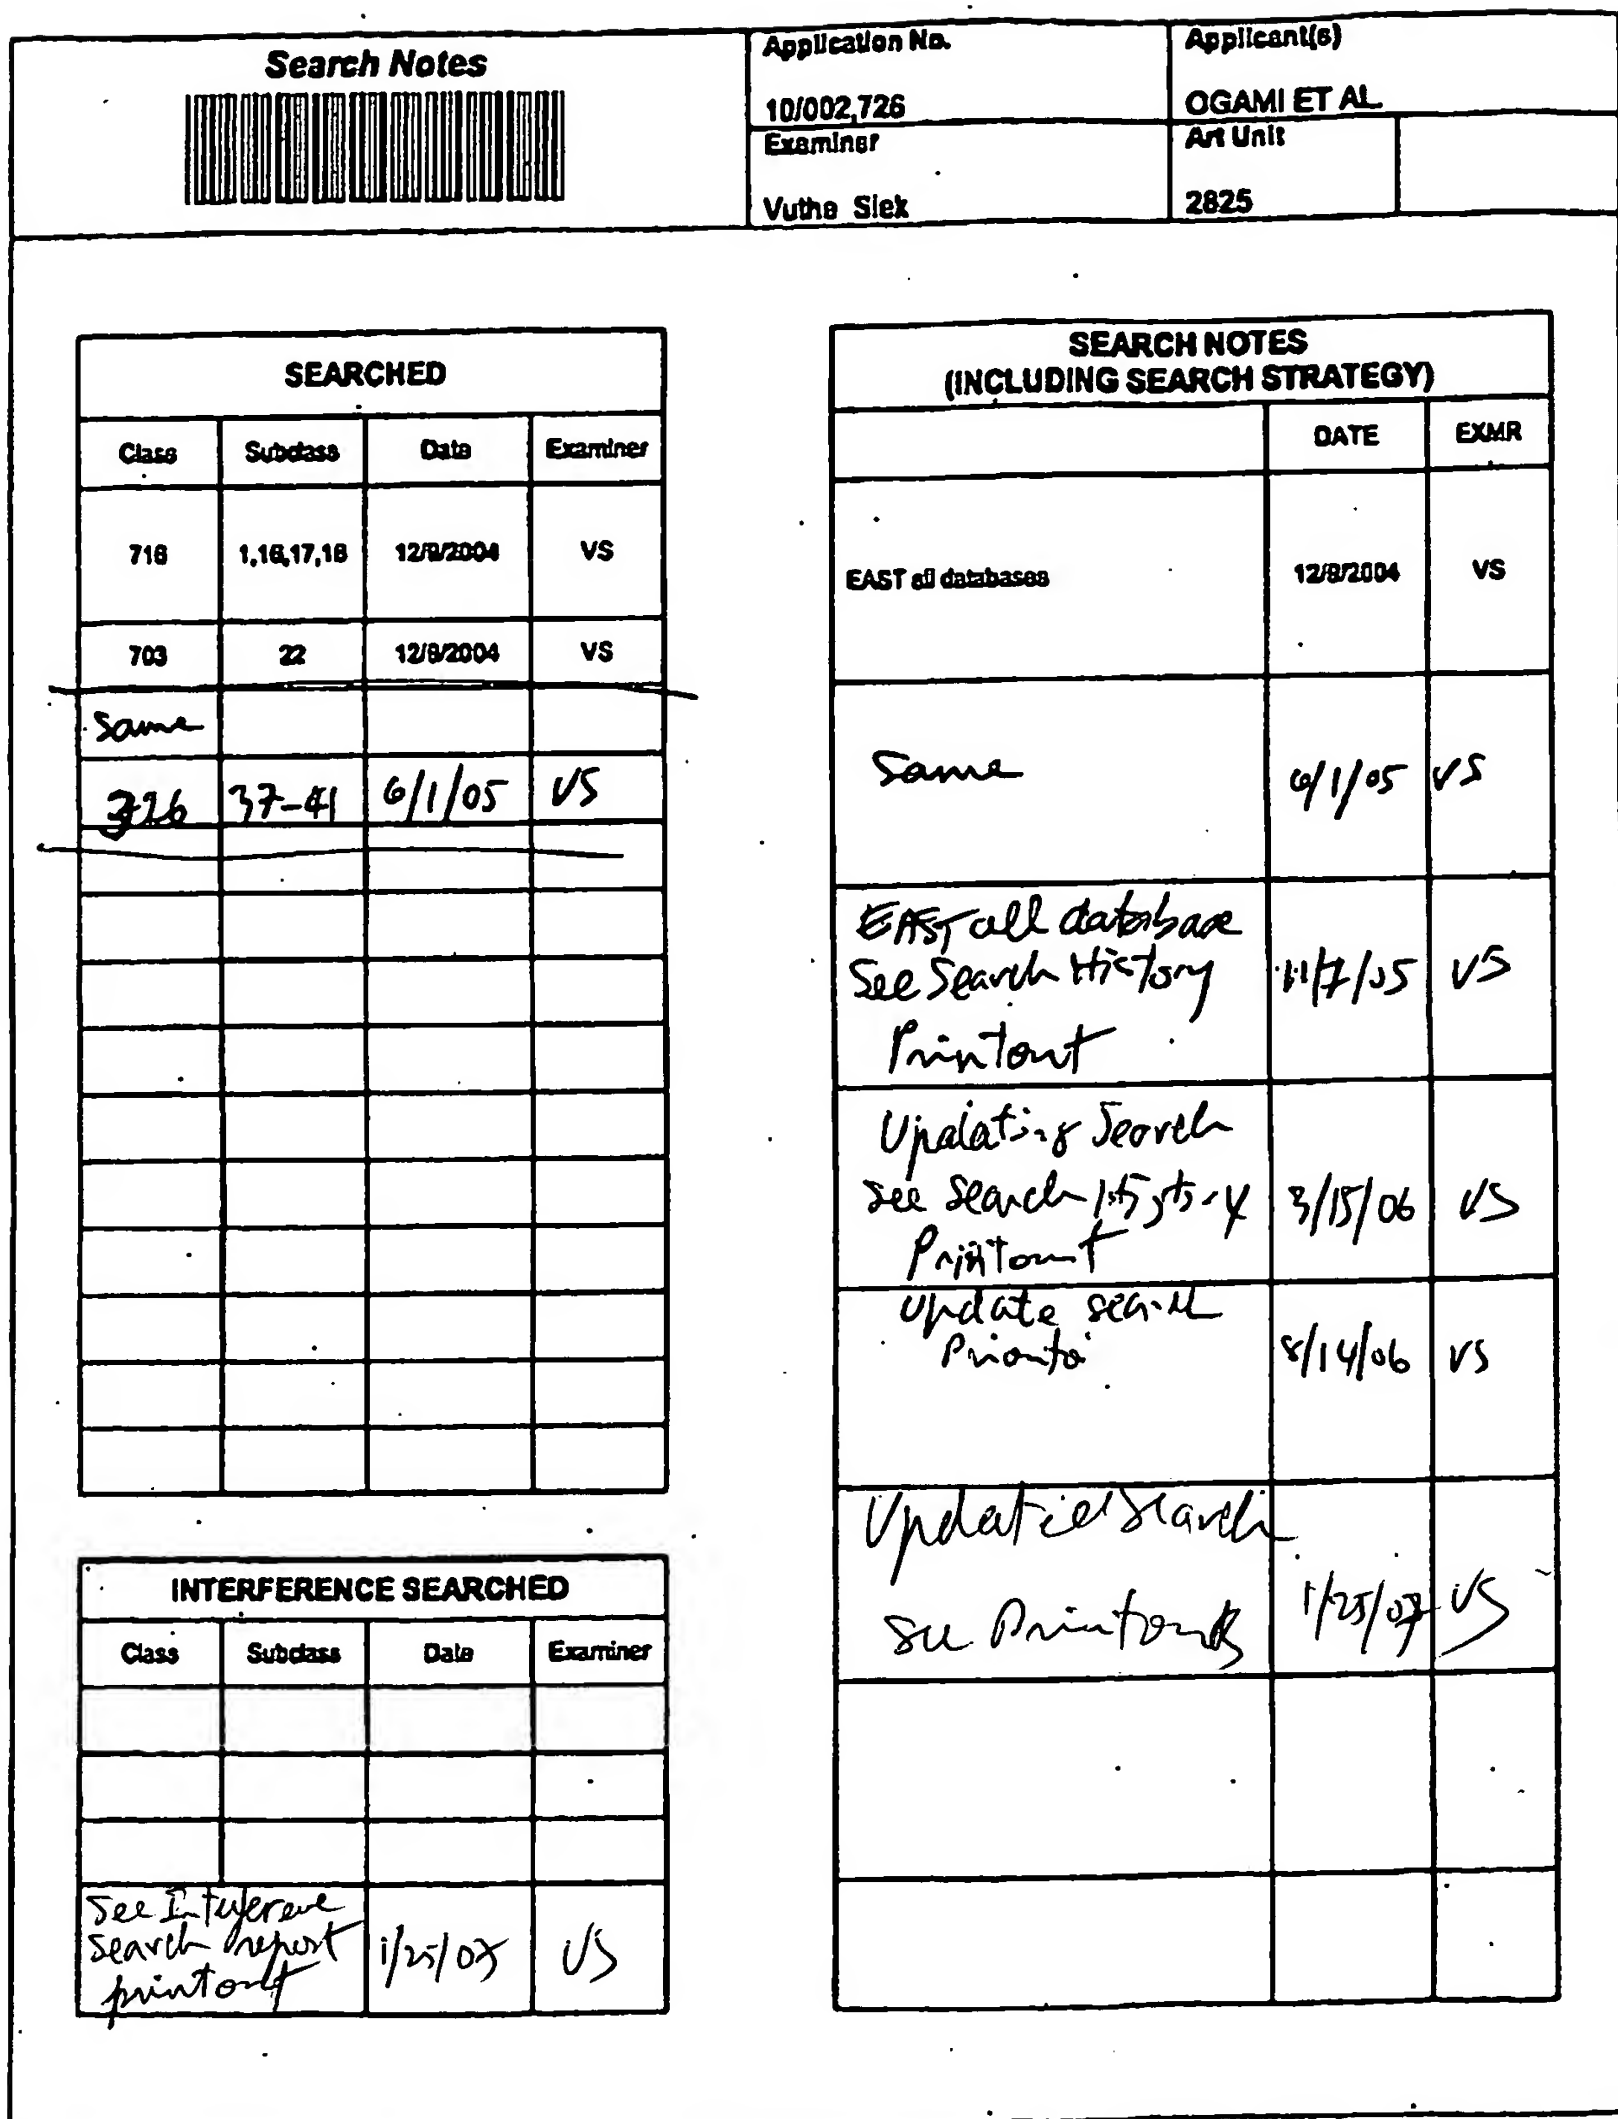 Search Notes
Application No.
Applicant(s)
10/002,726
OGAMI ET AL.
Examiner
Art Unit
Vuthe Siek
2825
SEARCHED
Class Subclass Date Examiner
716 1,16,17,18 12/8/2004 VS
703 22 12/8/2004 VS
Same
326 37-41 6/1/05 VS
INTERFERENCE SEARCHED
Class Subclass Date Examiner
See Interference
search report
printout
1/25/07 VS
SEARCH NOTES
(INCLUDING SEARCH STRATEGY)
DATE EXMR
EAST all databases 12/8/2004 VS
Same 6/1/05 VS
EAST all database
See Search History
Printout
11/7/05 VS
Updating Search
see search history
Printout
3/15/06 VS
Update search
8/14/06 VS
Updated Search
see Printouts
1/25/07 VS